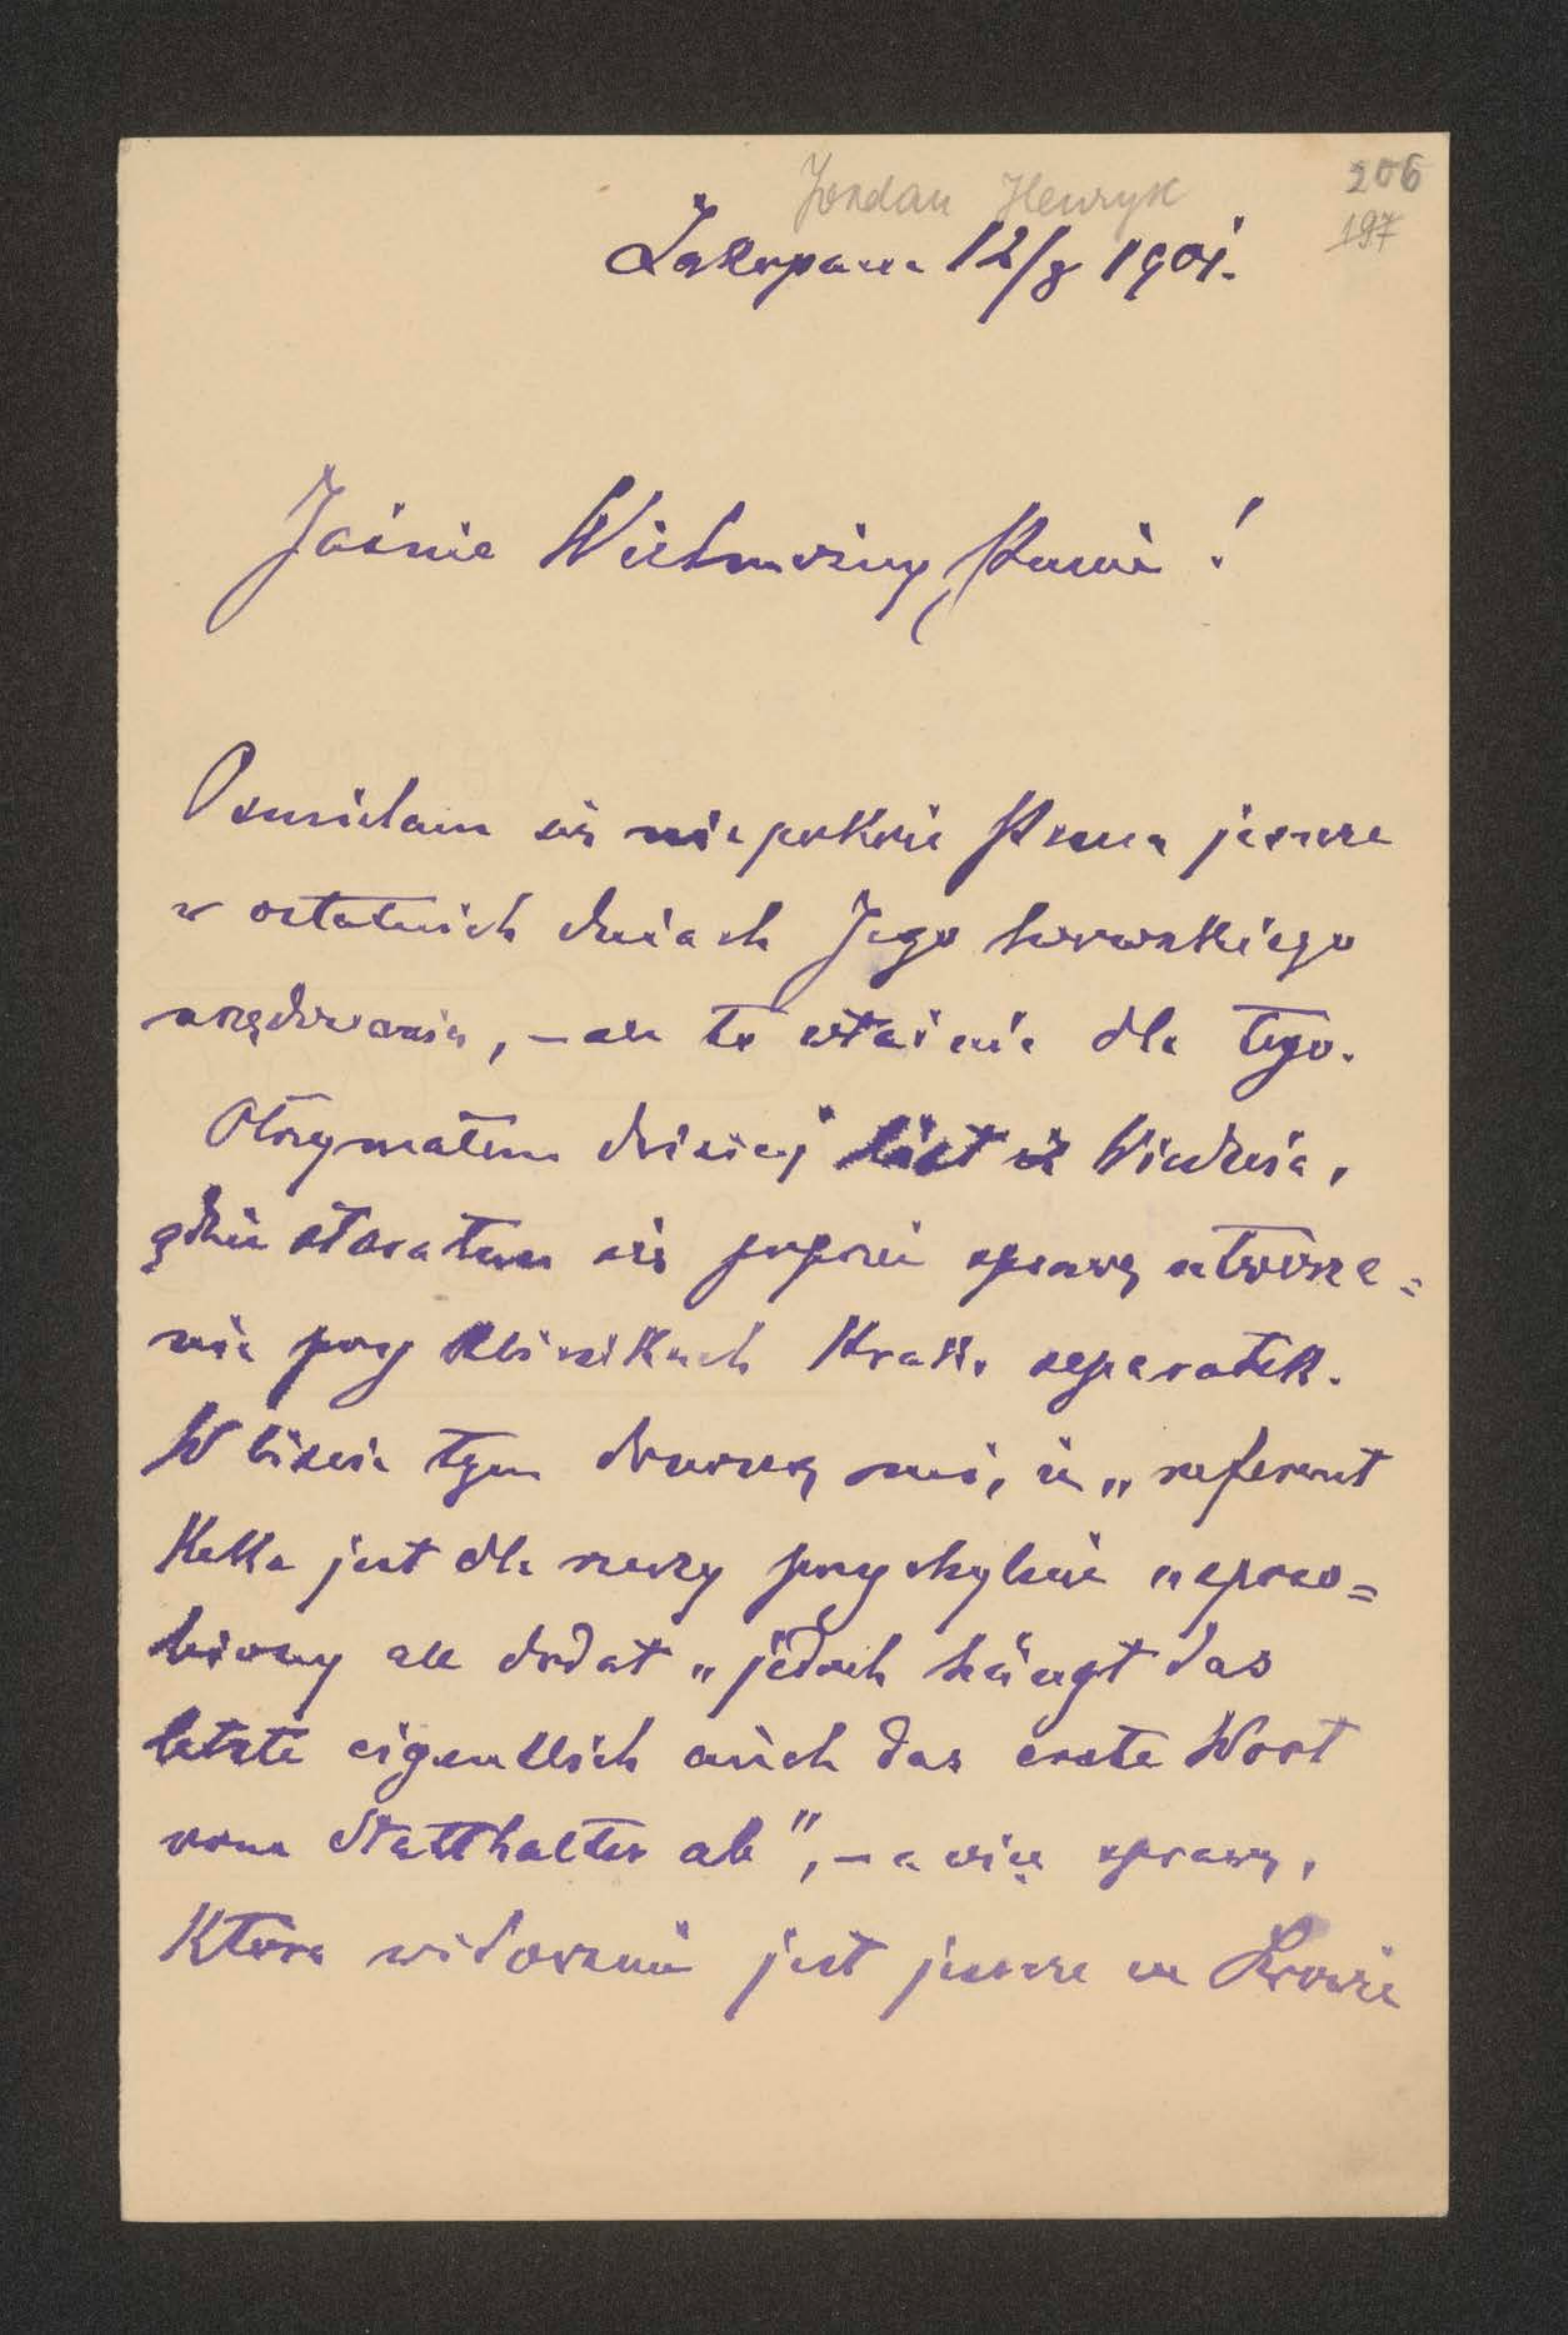 Jordan Henryk
206
197
Zakopane 12/8 1901.
Jaśnie Wielmożny Panie!
Ośmielam się niepokoić Pana jeszcze
w ostatnich dniach Jego lwowskiego
urzędowania, – ale to właśnie dla tego.
Otrzymałem dzisiaj list z Wiednia,
gdzie starałem się poprzeć sprawę utworze=
nia przy klinikach Krak. separatek.
W liście tym donoszą mi, że „referent
Kelle jest dla rzeczy przychylnie usposo=
biony ale dodał „jedoch hängt das
letzte eigentlich auch das erste Wort
vom Statthalter ab", – a więc sprawa,
która widocznie jest jeszcze we Lwowie